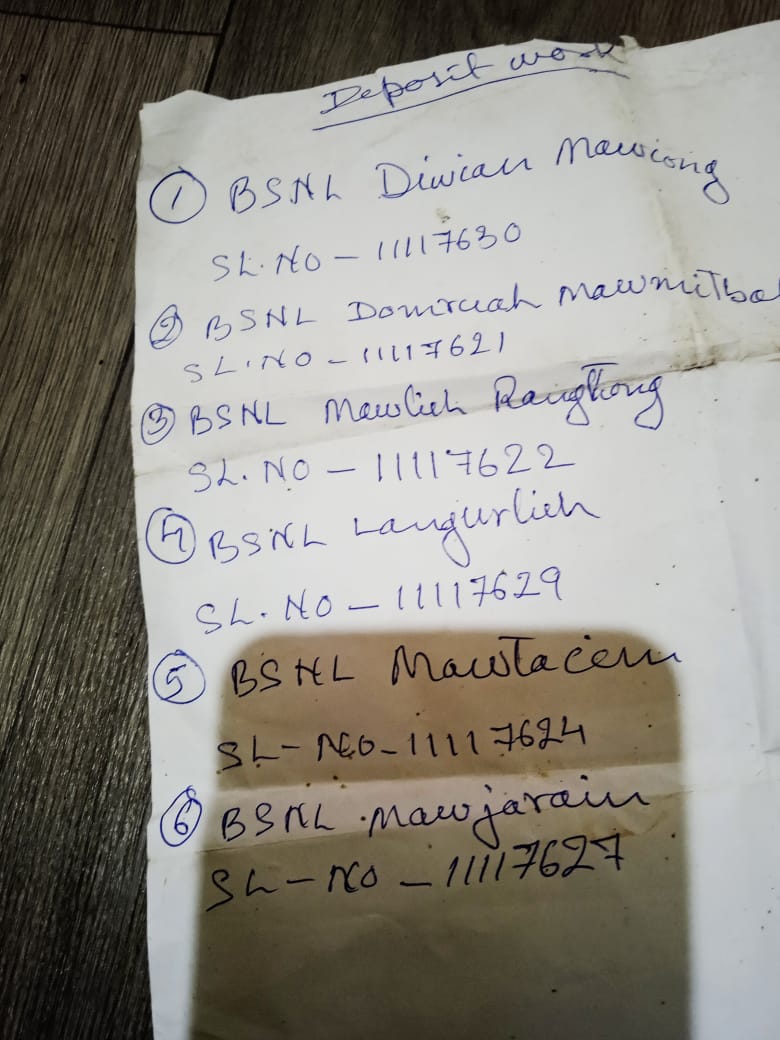 Deposit work
① BSNL Diwian Mawiong
SL.NO - 11117630
② BSNL Domruah
SL.NO - 11117621
③ BSNL Mawlieh Rangthong
SL.NO - 11117622
④ BSNL Langurlieh
SL.NO - 11117629
⑤ BSNL
SL-NO - 11117624
⑥ BSNL Mawjarain
SL-NO - 11117627